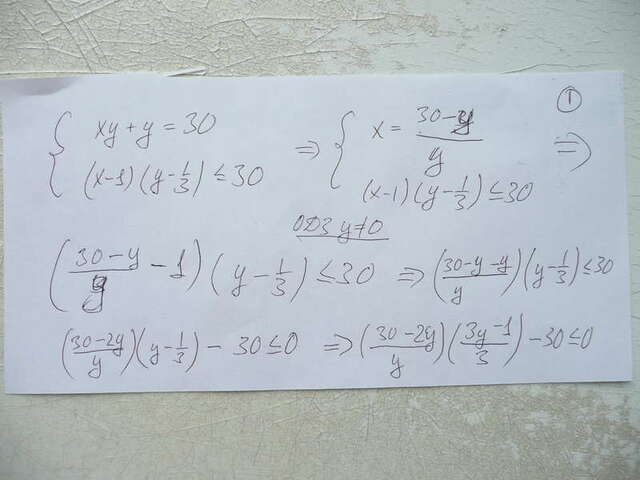 ①
{ xy + y = 30 ⇒ { x = (30-y)/y ⇒
(x-1)(y-1/3) ≤ 30 (x-1)(y-1/3) ≤ 30
ОДЗ y≠0
((30-y)/y - 1)(y - 1/3) ≤ 30 ⇒ ((30-y-y)/y)(y-1/3) ≤ 30
((30-2y)/y)(y-1/3) - 30 ≤ 0 ⇒ ((30-2y)/y)((3y-1)/3) - 30 ≤ 0